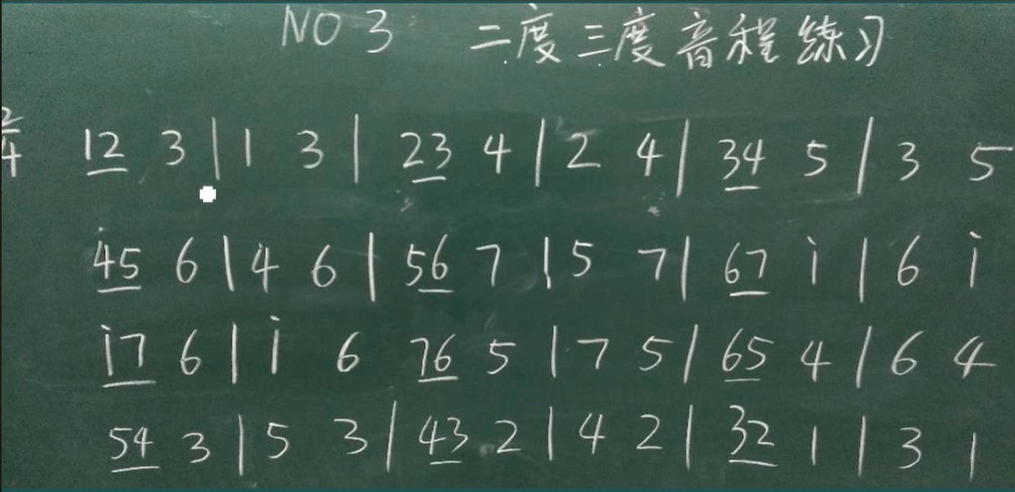 NO 3 二度三度音程练习
2/4 12 3 | 1 3 | 23 4 | 2 4 | 34 5 | 3 5
45 6 | 4 6 | 56 7 | 5 7 | 67 i | 6 i
i7 6 | i 6 76 5 | 7 5 | 65 4 | 6 4
54 3 | 5 3 | 43 2 | 4 2 | 32 1 | 3 1